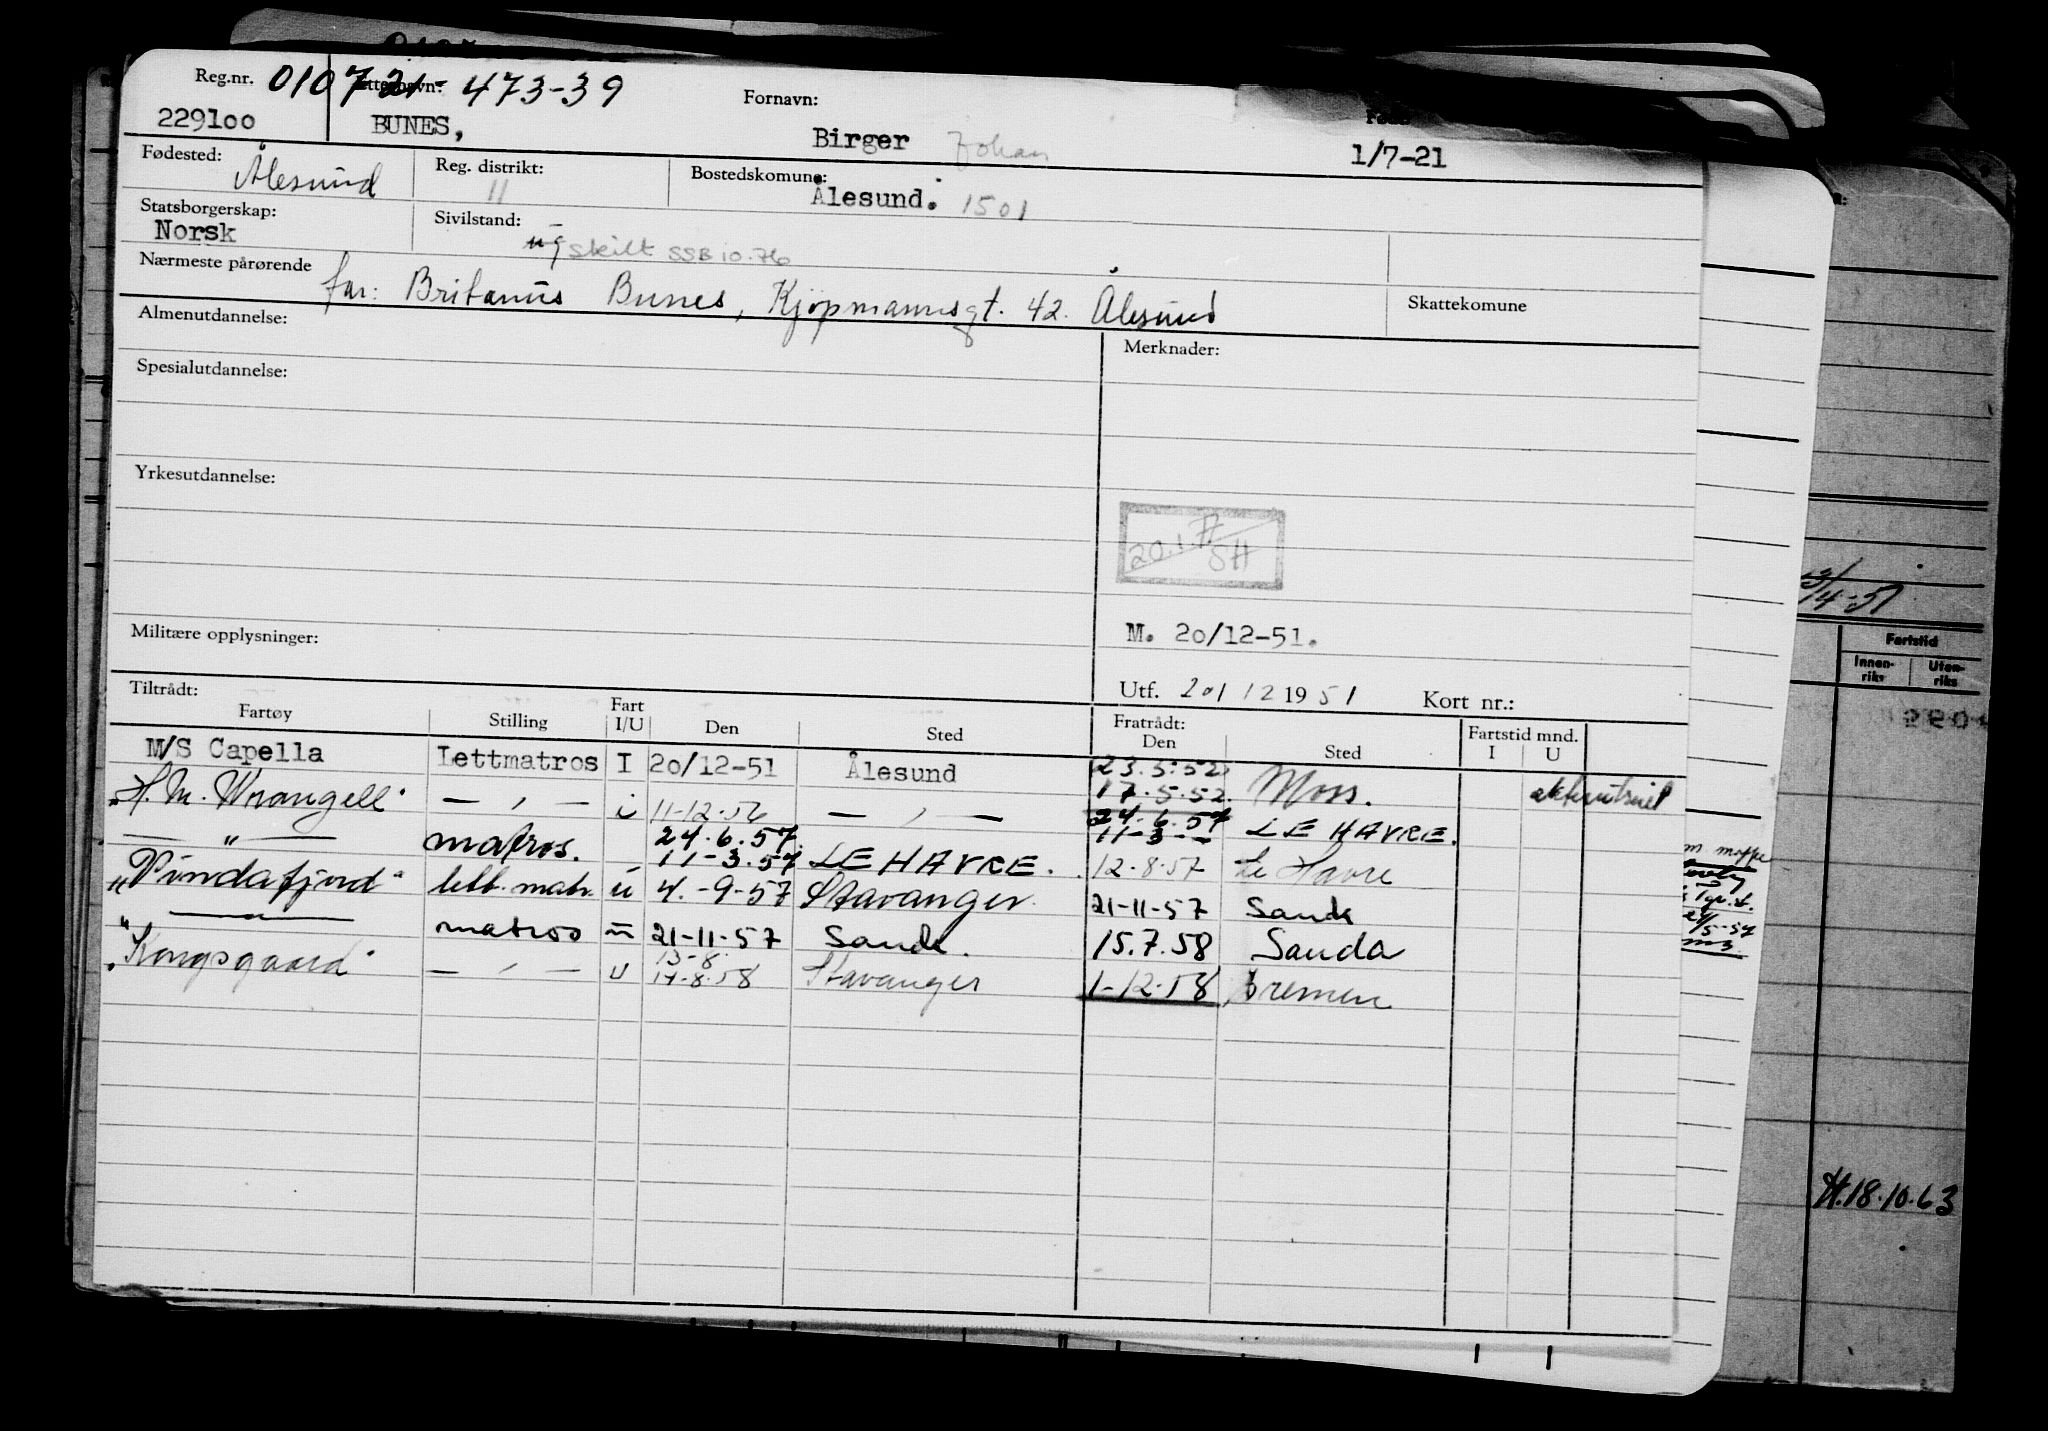 Reg.nr. 010721- 473-39 Etternavn: Fornavn: Født
229100 BUNES, Birger Johan 1/7-21
Fødested: Ålesund Reg. distrikt: 11 Bostedskomune: Ålesund. 1501
Statsborgerskap: Norsk Sivilstand: ug skilt SSB 10.76
Nærmeste pårørende far: Britanus Bunes, Kjøpmannsgt. 42. Ålesund Skattekomune
Almenutdannelse: Merknader:
Spesialutdannelse:
Yrkesutdannelse:
20.1.77 SH
Militære opplysninger: M. 20/12-51.
Tiltrådt: Utf. 20/12 1951 Kort nr.:
Fartøy Stilling Fart I/U Den Sted Fratrådt: Den Sted Fartstid mnd. I U
M/S Capella Lettmatros I 20/12-51 Ålesund 23.5.52 17.5.52. Moss.
"H.M. Wrangell" — " — i 11-12-56 — " — 24.6.57 11-3 — LE HAVRE.
— " — matros. 24.6.57. 11-3.57 LE HAVRE. 12-8-57 Le Havre
"Vindafjord" lett.matr. u 4.-9-57 Stavanger 21-11-57 Sauda
— " — matros u 21-11-57 Sauda. 15.7.58 Sauda
"Kongsgaard" — " — u 13-8. 14-8-58 Stavanger 1-12-58 Bremen
3/4-51
Fartstid
Innen-riks Uten-riks
5-57
18.10.63